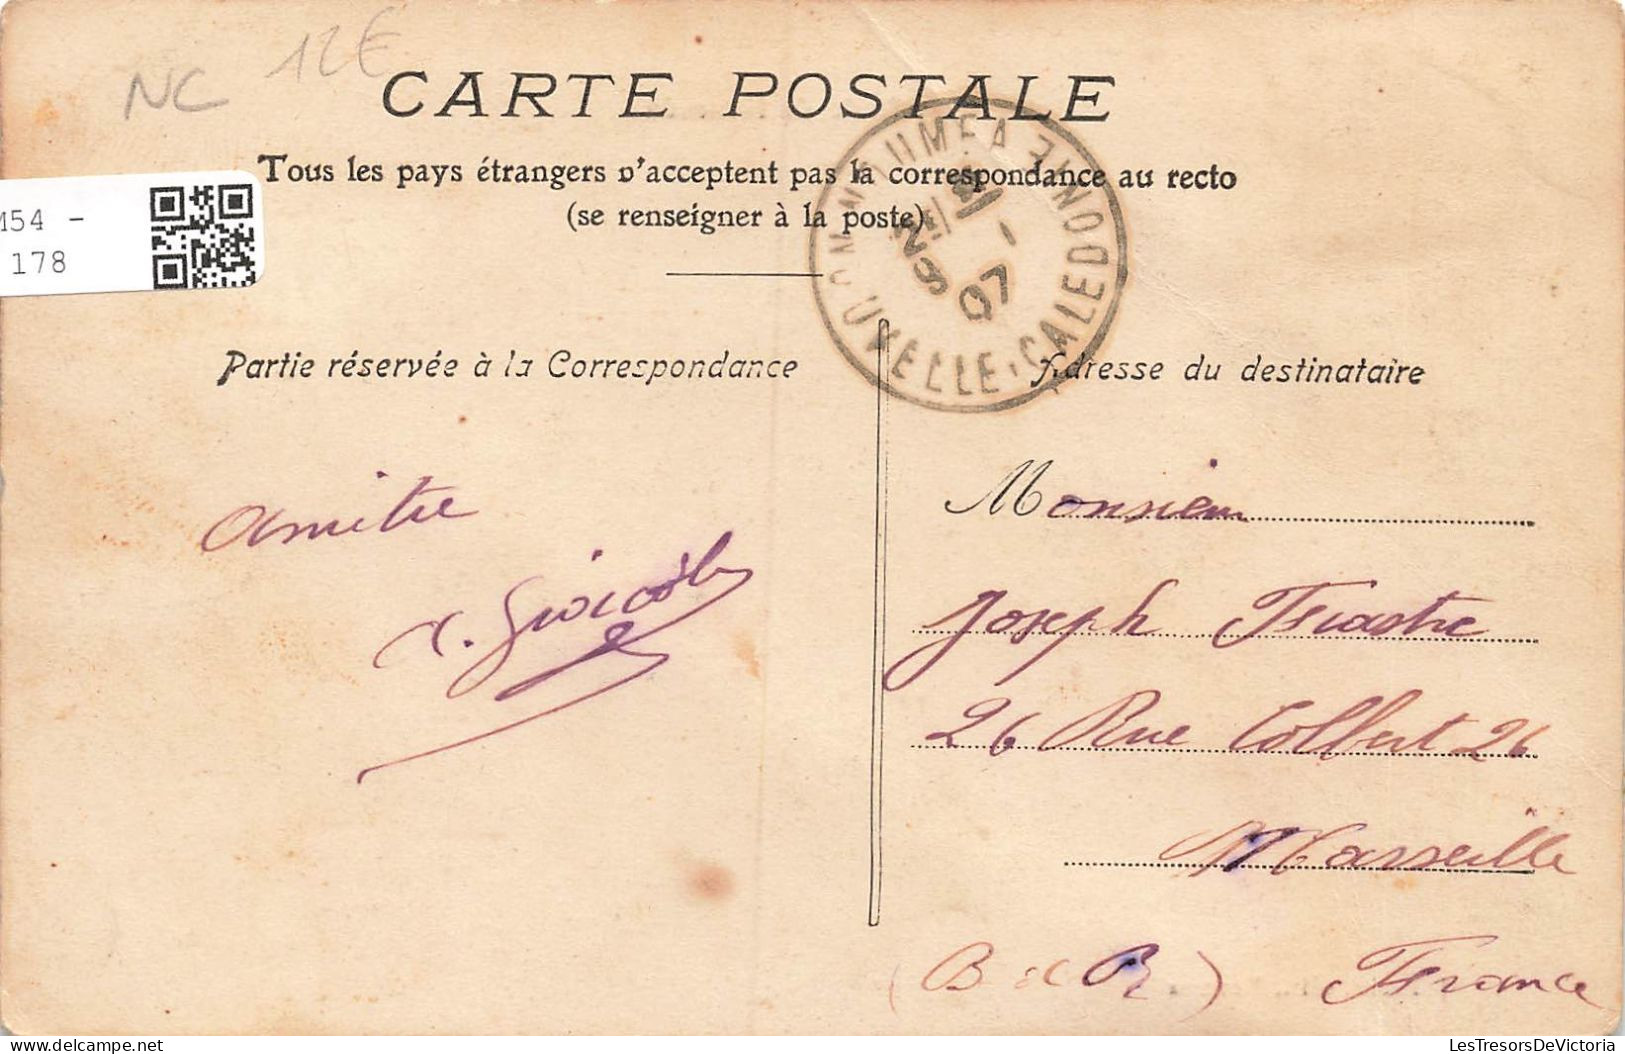 NC 12€
CARTE POSTALE
Tous les pays étrangers n'acceptent pas la correspondance au recto
(se renseigner à la poste)
M54 -
178
NOUMEA
NLLE CALEDONIE
07
Partie réservée à la Correspondance
Adresse du destinataire
Amitié
Monsieur
Joseph
26 Rue Colbert 26
Marseille
(B d R) France
LesTresorsDeVictoria
delcampe.net